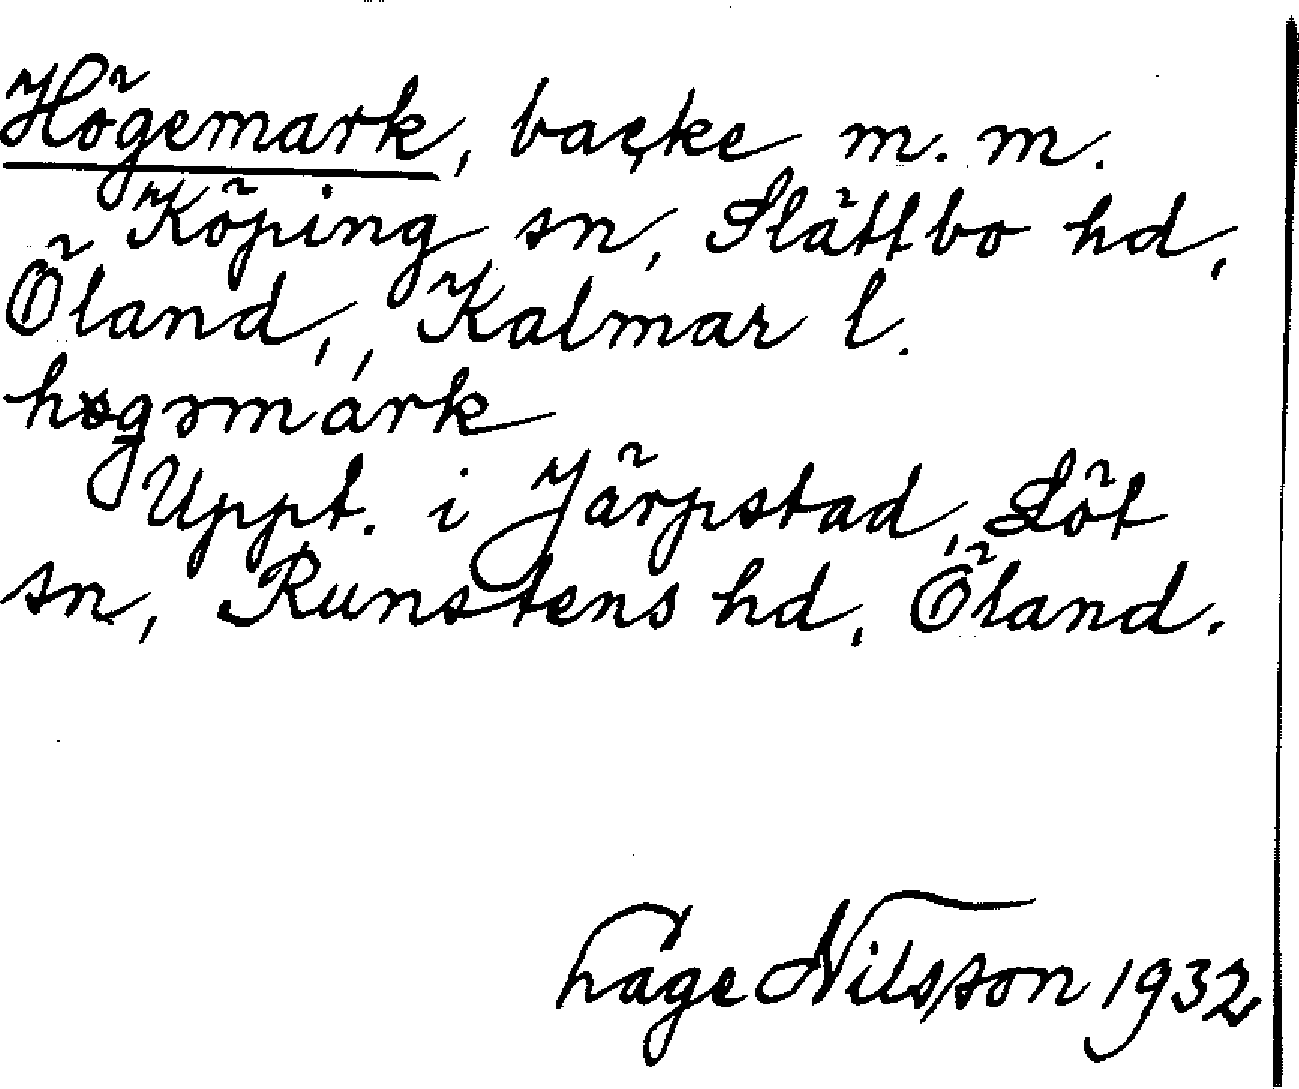 Högemark, backe m. m.
Köping sn, Slättbo hd,
Öland, Kalmar l.
høgəmárk
Uppt. i Järpstad, Löt
sn, Runstens hd, Öland.
Håge Nilsson 1932